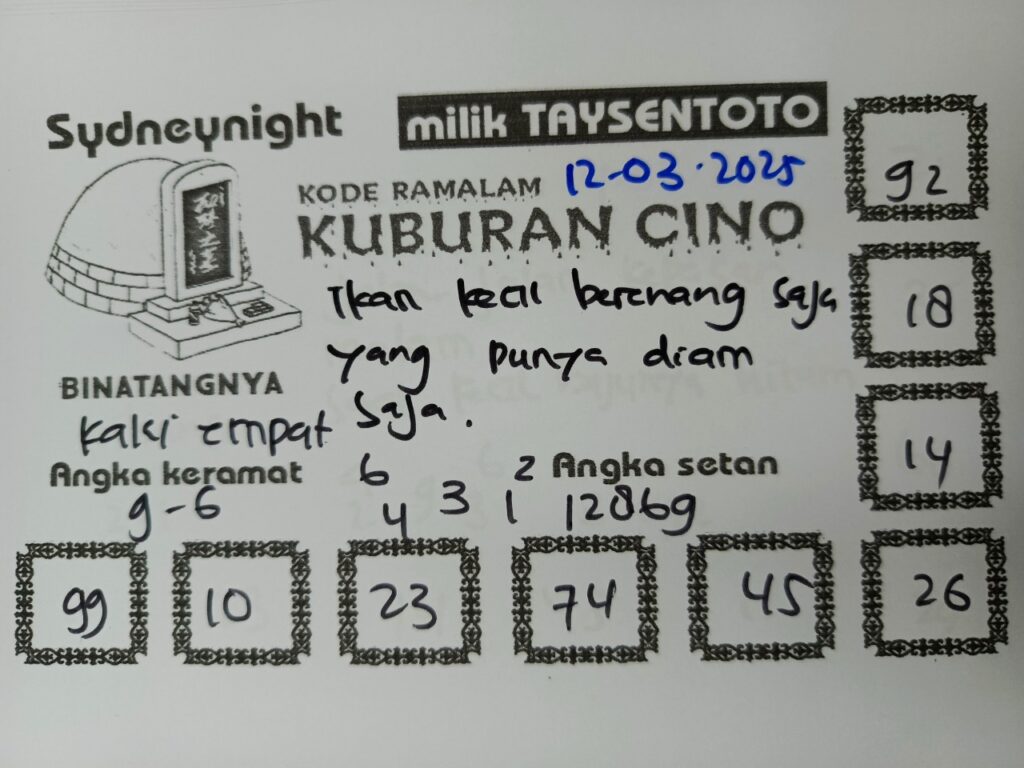 Sydneynight
milik TAYSENTOTO
KODE RAMALAM 12-03-2025
KUBURAN CINO
Ikan kecil berenang saja
yang punya diam
saja.
BINATANGNYA
kaki empat
Angka keramat
9-6
6 2
4 3 1
Angka setan
12869
92
18
14
99 10 23 74 45 26